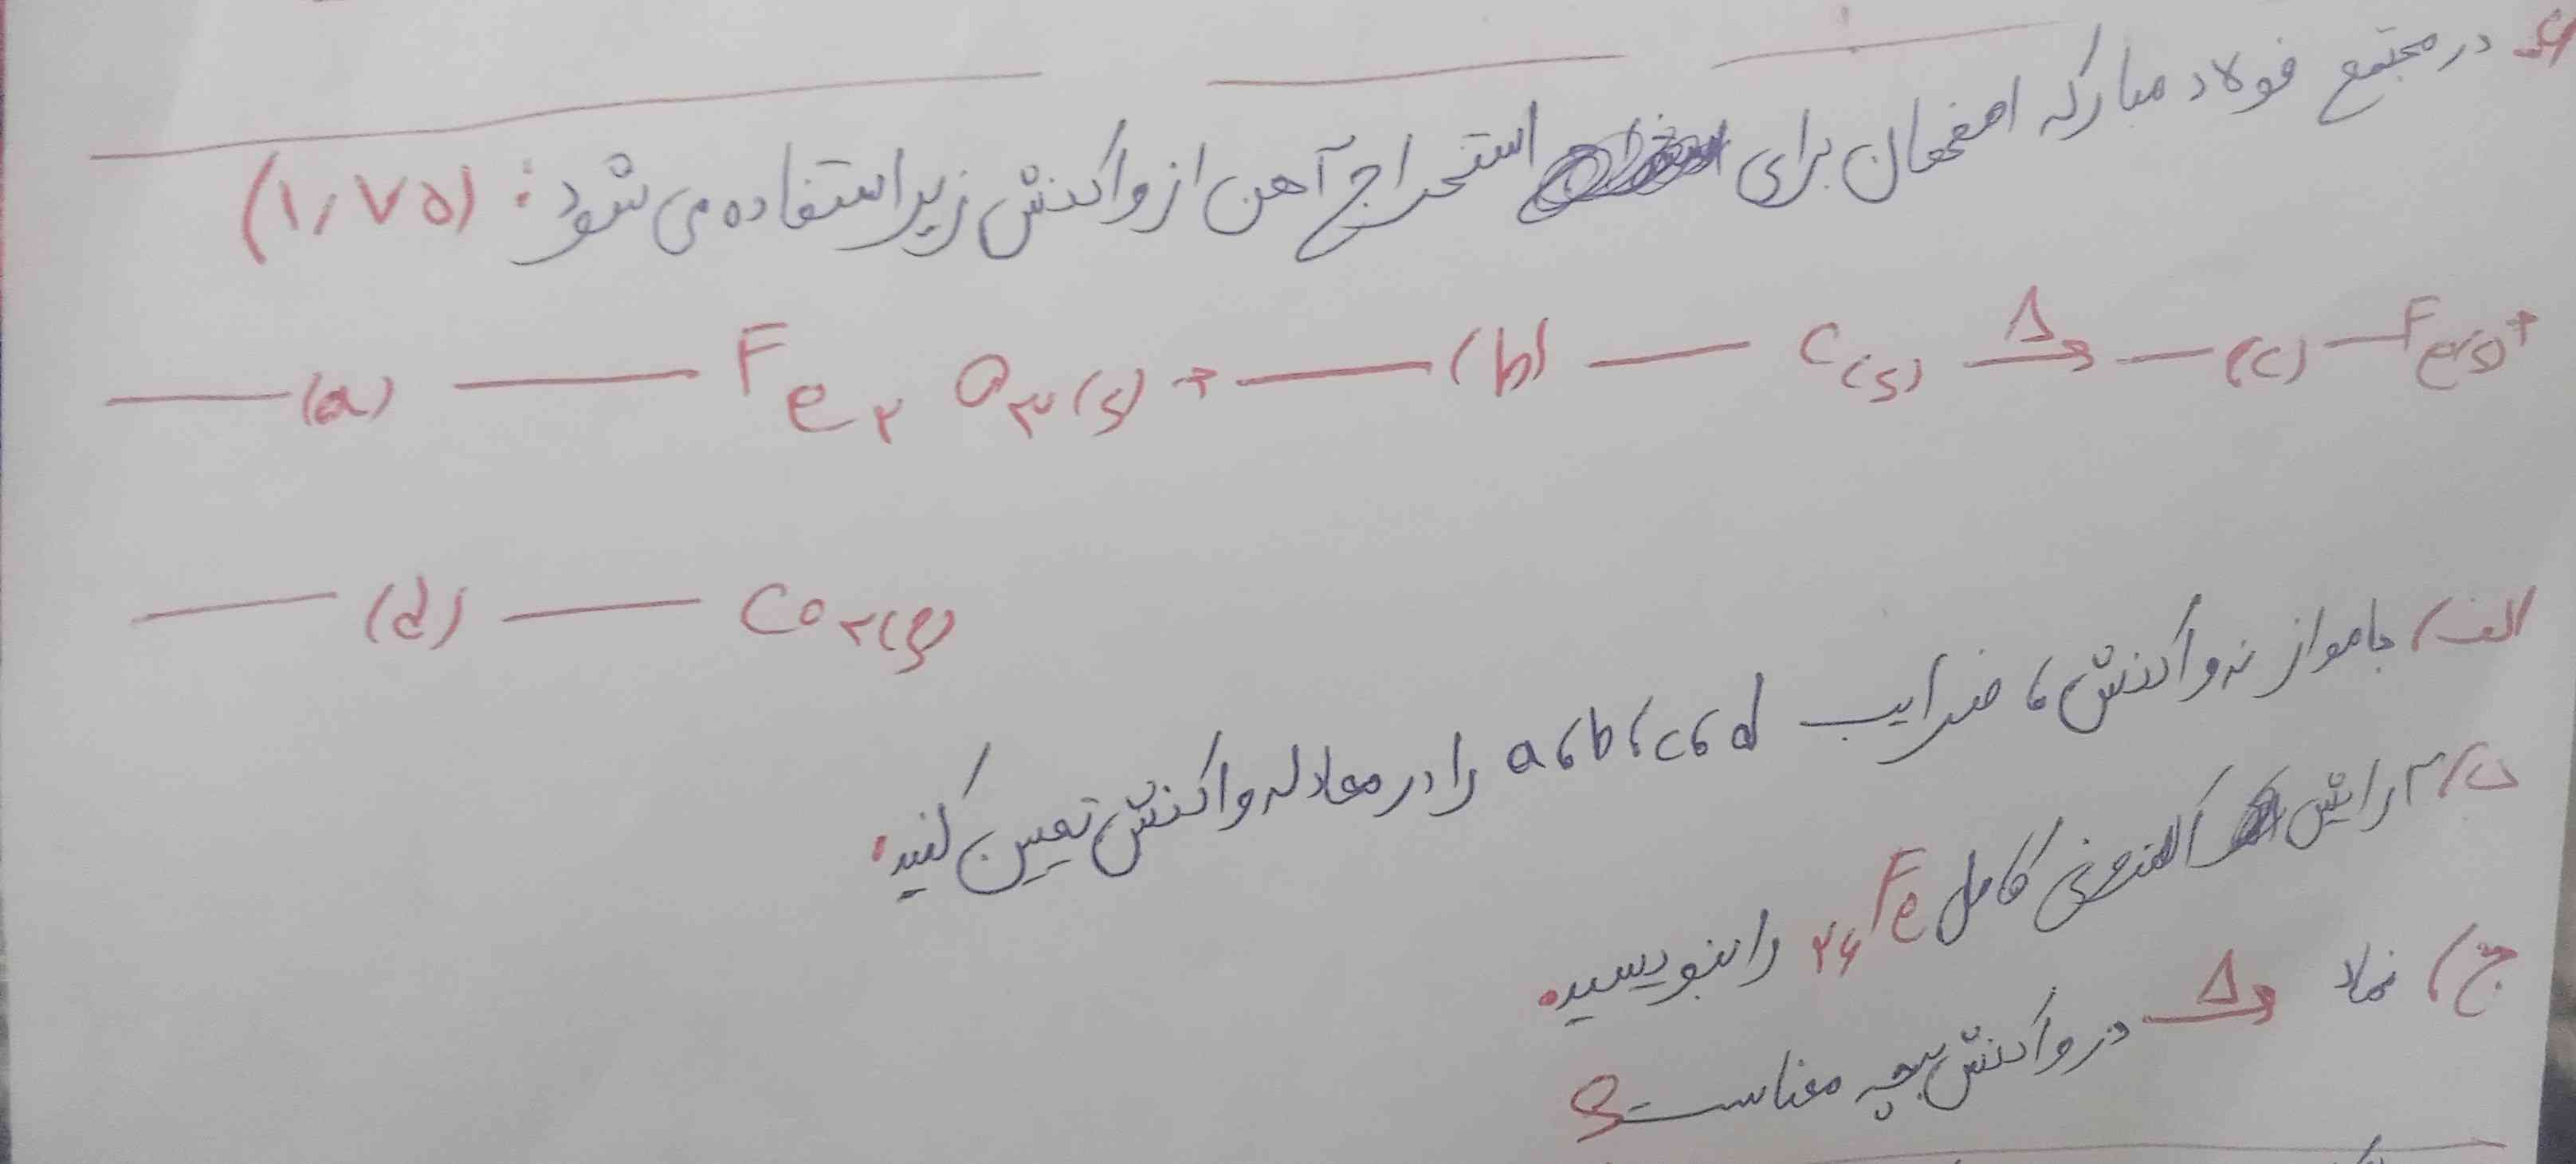 ۶_ در مجتمع فولاد مبارکه اصفهان برای استخراج آهن از واکنش زیر استفاده می شود: (۱٫۷۵)
___(a)___ Fe۲O۳(s) + ___(b)___ C(s) Δ→ ___(c)___ Fe(s) +
___(d)___ CO۲(g)
الف) با موازنه واکنش، ضرایب a، b، c، d را در معادله واکنش تعیین کنید.
ب) آرایش الکترونی کامل ۲۶Fe را بنویسید.
ج) نماد Δ→ در واکنش بچه معناست؟